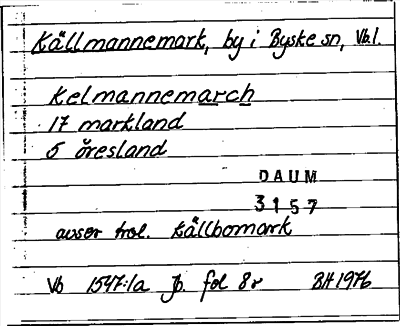 Källmannemark, by i Byske sn, Vb.l.
Kelmannemarch
17 markland
5 öresland
DAUM
3157
avser trol. Källbomark
Vb 1547:1a Jb. fol 8r BH 1976